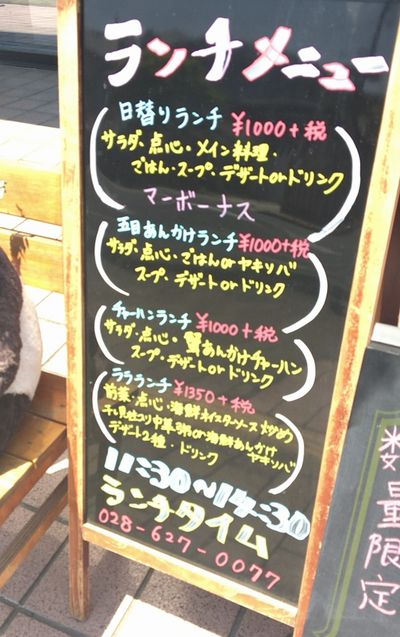 ランチメニュー
日替りランチ ¥1000+税
サラダ・点心・メイン料理・
ごはん・スープ・デザートorドリンク
マーボーナス
五目あんかけランチ ¥1000+税
サラダ・点心・ごはんorヤキソバ
スープ・デザートorドリンク
チャーハンランチ ¥1000+税
サラダ・点心・蟹あんかけチャーハン
スープ・デザートorドリンク
ララランチ ¥1350+税
前菜・点心・海鮮オイスターソース炒めつ
干し貝柱入り中華粥or海鮮あんかけ
ヤキソバ
デザート2種・ドリンク
11:30~14:30
ランチタイム
028-627-0077
数量限定